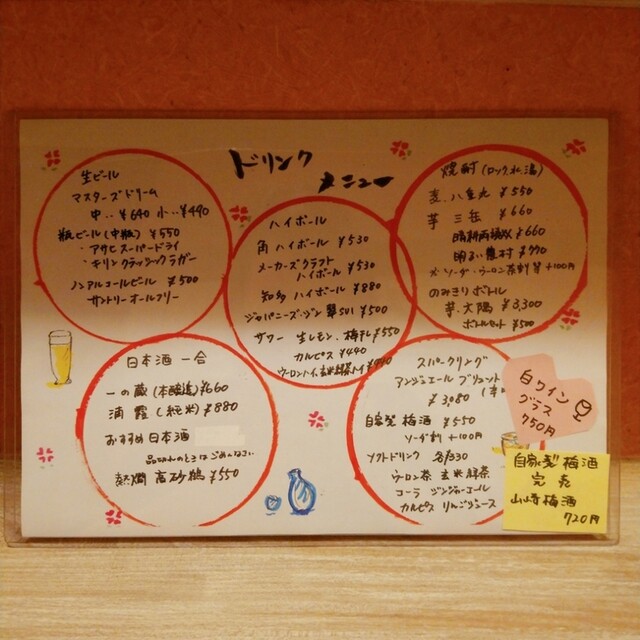 ドリンク
メニュー
生ビール
マスターズドリーム
中‥¥640 小‥¥490
瓶ビール(中瓶) ¥550
・アサヒスーパードライ
・キリンクラッシックラガー
ノンアルコールビール ¥500
サントリーオールフリー
ハイボール
角ハイボール ¥530
メーカーズクラフト
ハイボール ¥530
知多ハイボール ¥880
ジャパニーズ・ジン 翠SUI ¥500
サワー 生レモン、梅干し ¥550
カルピス ¥440
ウーロンハイ、玄米緑茶ハイ ¥440
焼酎(ロック、水、湯)
麦、八重丸 ¥550
芋 三岳 ¥660
晴耕雨読 ¥660
明るい農村 ¥770
ソーダ・ウーロン茶割 +100円
のみきりボトル
芋、大隅 ¥3,300
ボトルセット ¥500
日本酒 一合
一の蔵(本醸造) ¥660
浦霞(純米) ¥880
おすすめ日本酒
品切れのときはごめんなさい
熱燗 高砂鶴 ¥550
スパークリング
アンジュエール ブリュット
¥3,080
自家製梅酒 ¥550
ソーダ割 +100円
ソフトドリンク 各¥330
ウーロン茶 玄米緑茶
コーラ ジンジャーエール
カルピス りんごジュース
白ワイン
グラス
750円
自家製梅酒
完売
山崎梅酒
720円